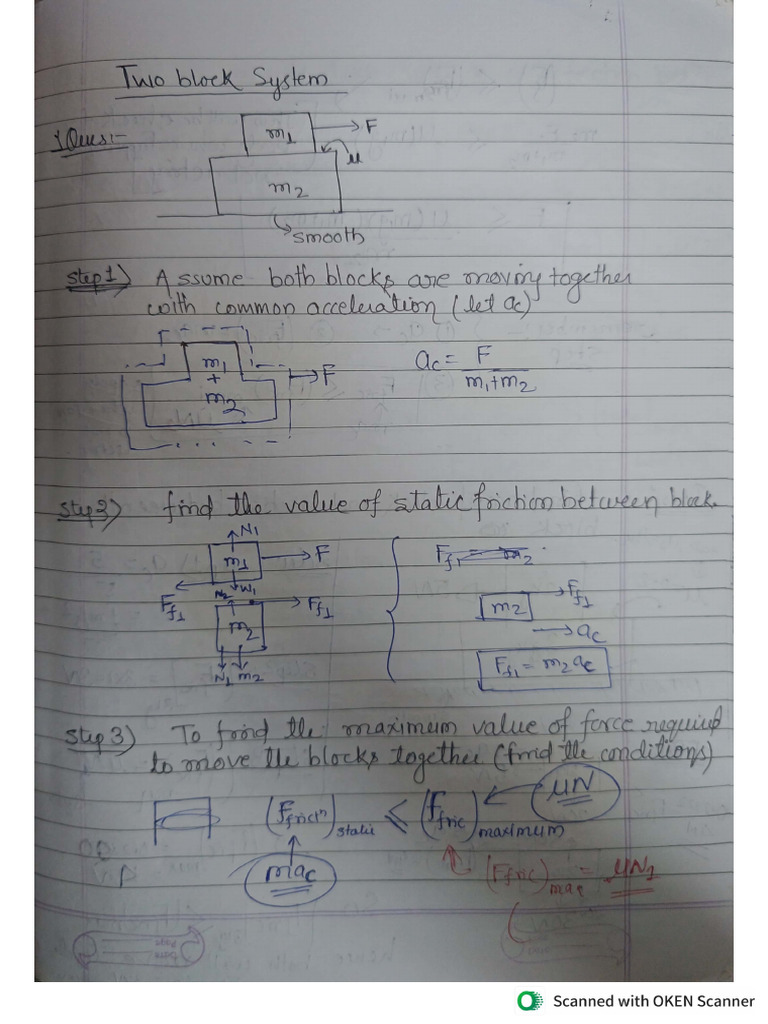 Two block System
1 Ques:-
m1
F
μ
m2
smooth
step1) Assume both blocks are moving together
with common acceleration (let ac)
m1
+
m2
F
ac = F
m1+m2
step2) find the value of static friction between block.
N1
m1
F
Ff1
N2
W1
Ff1
m2
N1 m2
Ff1 = m2
m2
Ff1
ac
Ff1 = m2ac
step3) To find the maximum value of force required
to move the blocks together (find the conditions)
μN
(Ffricn)static ≤ (Ffric)maximum
mac
(Ffric)max = μN1
Scanned with OKEN Scanner